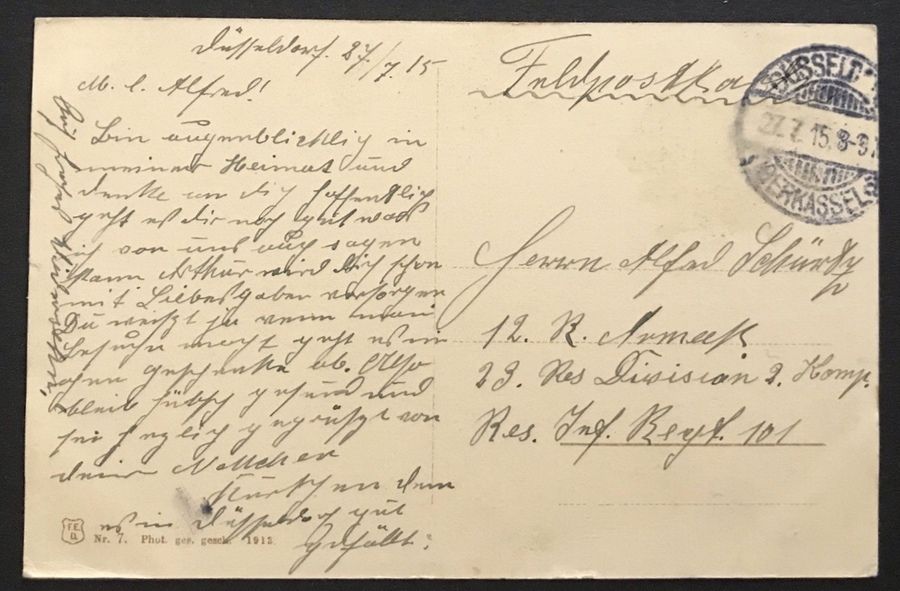 Düsseldorf. 27/7.15
M. l. Alfred!
Bin augenblicklich in
meiner Heimat und
denke an dich hoffentlich
geht es dir noch gut was
ich von uns auch sagen
kann Arthur wird dich schon
mit Liebesgaben versorgen
Du weißt ja wenn man
Besuche macht geht es nie
ohne Geschenke ab. Also
bleib hübsch gesund und
sei herzlich gegrüßt von
deine
dem
es in Düsseldorf gut
gefällt.
Feldpostka
DÜSSELD
27.7.15.8-9
OBERKASSEL
Herrn Alfred
12. R. Armeek
23. Res Division 2. Komp.
Res. Inf. Regt. 101
F.E.D.
Nr. 7. Phot. ges. gesch. 1913